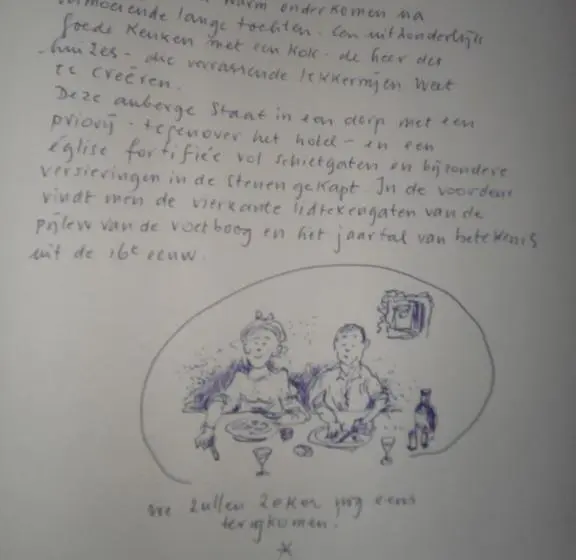 vermoeiende lange tochten. Een uitzonderlijk
goede keuken met een kok - de heer des
huizes - die verrassende lekkernijen weet
te creëren.
Deze auberge staat in een dorp met een
priorij - tegenover het hotel - en een
église fortifiée vol schietgaten en bijzondere
versieringen in de stenen gekapt. In de voordeur
vindt men de vierkante lidtekengaten van de
pijlen van de voetboog en het jaartal van betekenis
uit de 16e eeuw.
we zullen zeker nog eens
terugkomen.
*